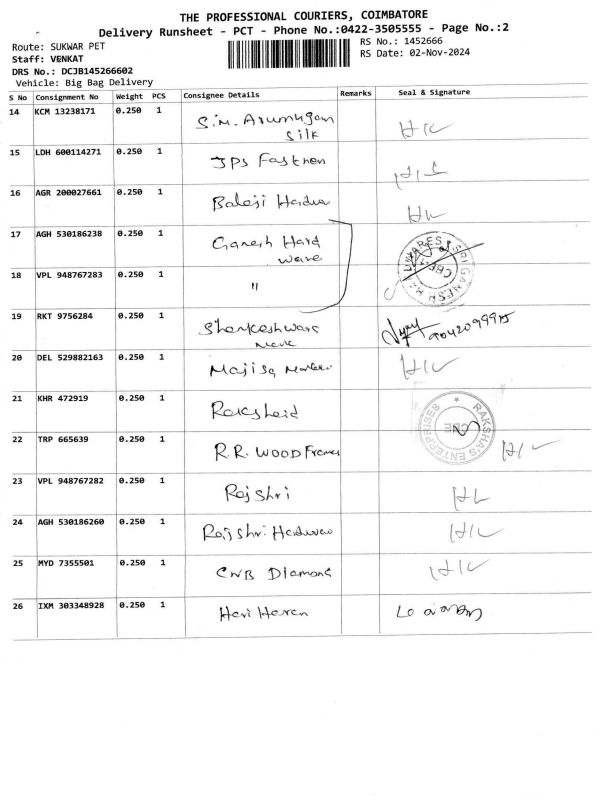 THE PROFESSIONAL COURIERS, COIMBATORE
Delivery Runsheet - PCT - Phone No.:0422-3505555 - Page No.:2
Route: SUKWAR PET
RS No.: 1452666
Staff: VENKAT
RS Date: 02-Nov-2024
DRS No.: DCJB145266602
Vehicle: Big Bag Delivery
S No Consignment No Weight PCS Consignee Details Remarks Seal & Signature
14 KCM 13238171 0.250 1 S.M. Arumugam
Silk
15 LDH 600114271 0.250 1 JPS Fastnen
16 AGR 200027661 0.250 1 Balaji Hardwa
17 AGH 530186238 0.250 1 Ganesh Hard
ware
SRI GANESH HARDWARES
CBE
18 VPL 948767283 0.250 1 "
19 RKT 9756284 0.250 1 Shankeshwara
20 DEL 529882163 0.250 1 Majisa
21 KHR 472919 0.250 1
RAKSHA'S ENTERPRISES
CBE
22 TRP 665639 0.250 1 R.R. WOOD Frames
23 VPL 948767282 0.250 1 Rajshri
24 AGH 530186260 0.250 1 Rajshri Hardwa
25 MYD 7355501 0.250 1 CNB Diamond
26 IXM 303348928 0.250 1 Hari Haran